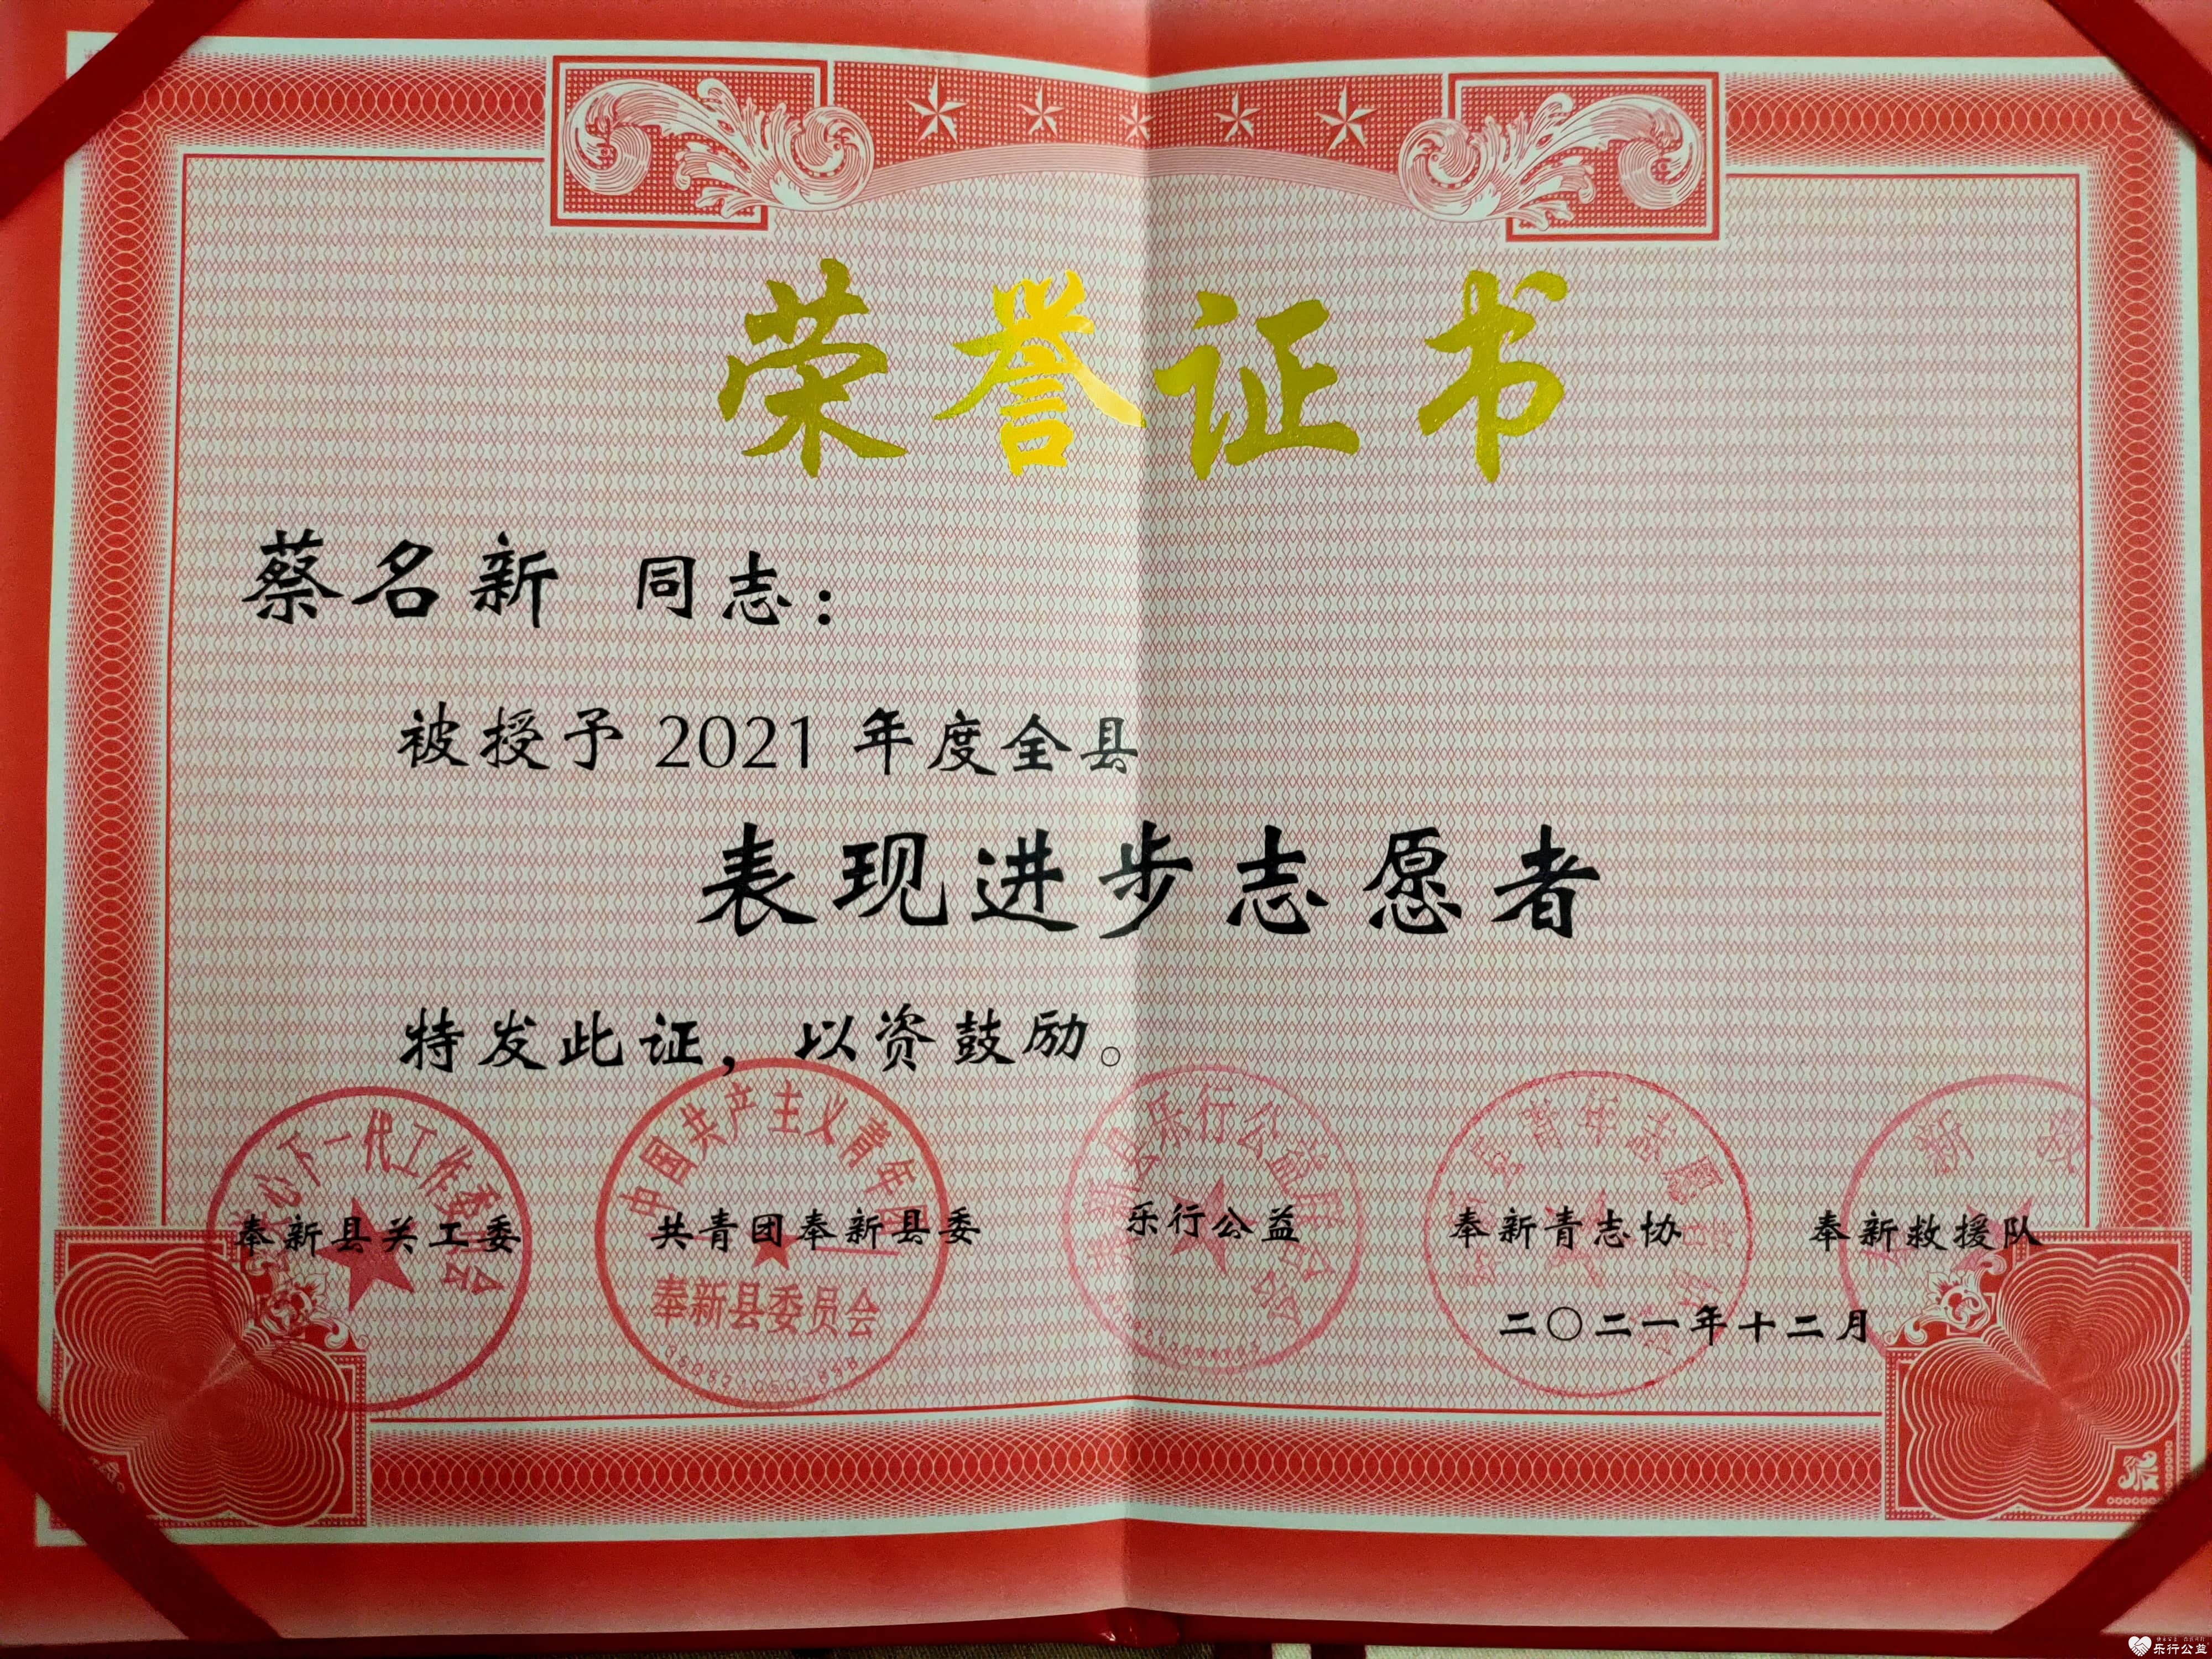 荣誉证书
蔡名新 同志：
被授予 2021 年度全县
表现进步志愿者
特发此证，以资鼓励。
心下一代工作委 会
中国共产主义青年团
乐行公益
县青年志愿
新 救
奉新县关工委 共青团奉新县委 乐行公益 奉新青志协 奉新救援队
奉新县委员会
二〇二一年十二月
乐行公益